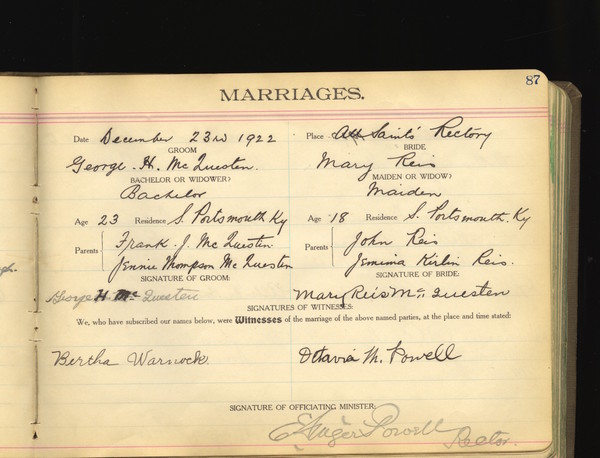 87
MARRIAGES.
Date December 23rd 1922 Place All Saints' Rectory
GROOM BRIDE
George. H. McQuesten. Mary Reis
BACHELOR OR WIDOWER? MAIDEN OR WIDOW?
Bachelor Maiden
Age 23 Residence S. Portsmouth Ky Age 18 Residence S. Portsmouth. Ky
Parents Frank. J. McQuesten. John Reis
Jennie Thompson McQuesten Parents Jemima Kirlin Reis.
SIGNATURE OF GROOM: SIGNATURE OF BRIDE:
George H Mc Questen Mary Reis Mc Questen
SIGNATURES OF WITNESSES:
We, who have subscribed our names below, were Witnesses of the marriage of the above named parties, at the place and time stated:
Bertha Warnock Ottavia M. Powell
SIGNATURE OF OFFICIATING MINISTER:
Powell Rector.